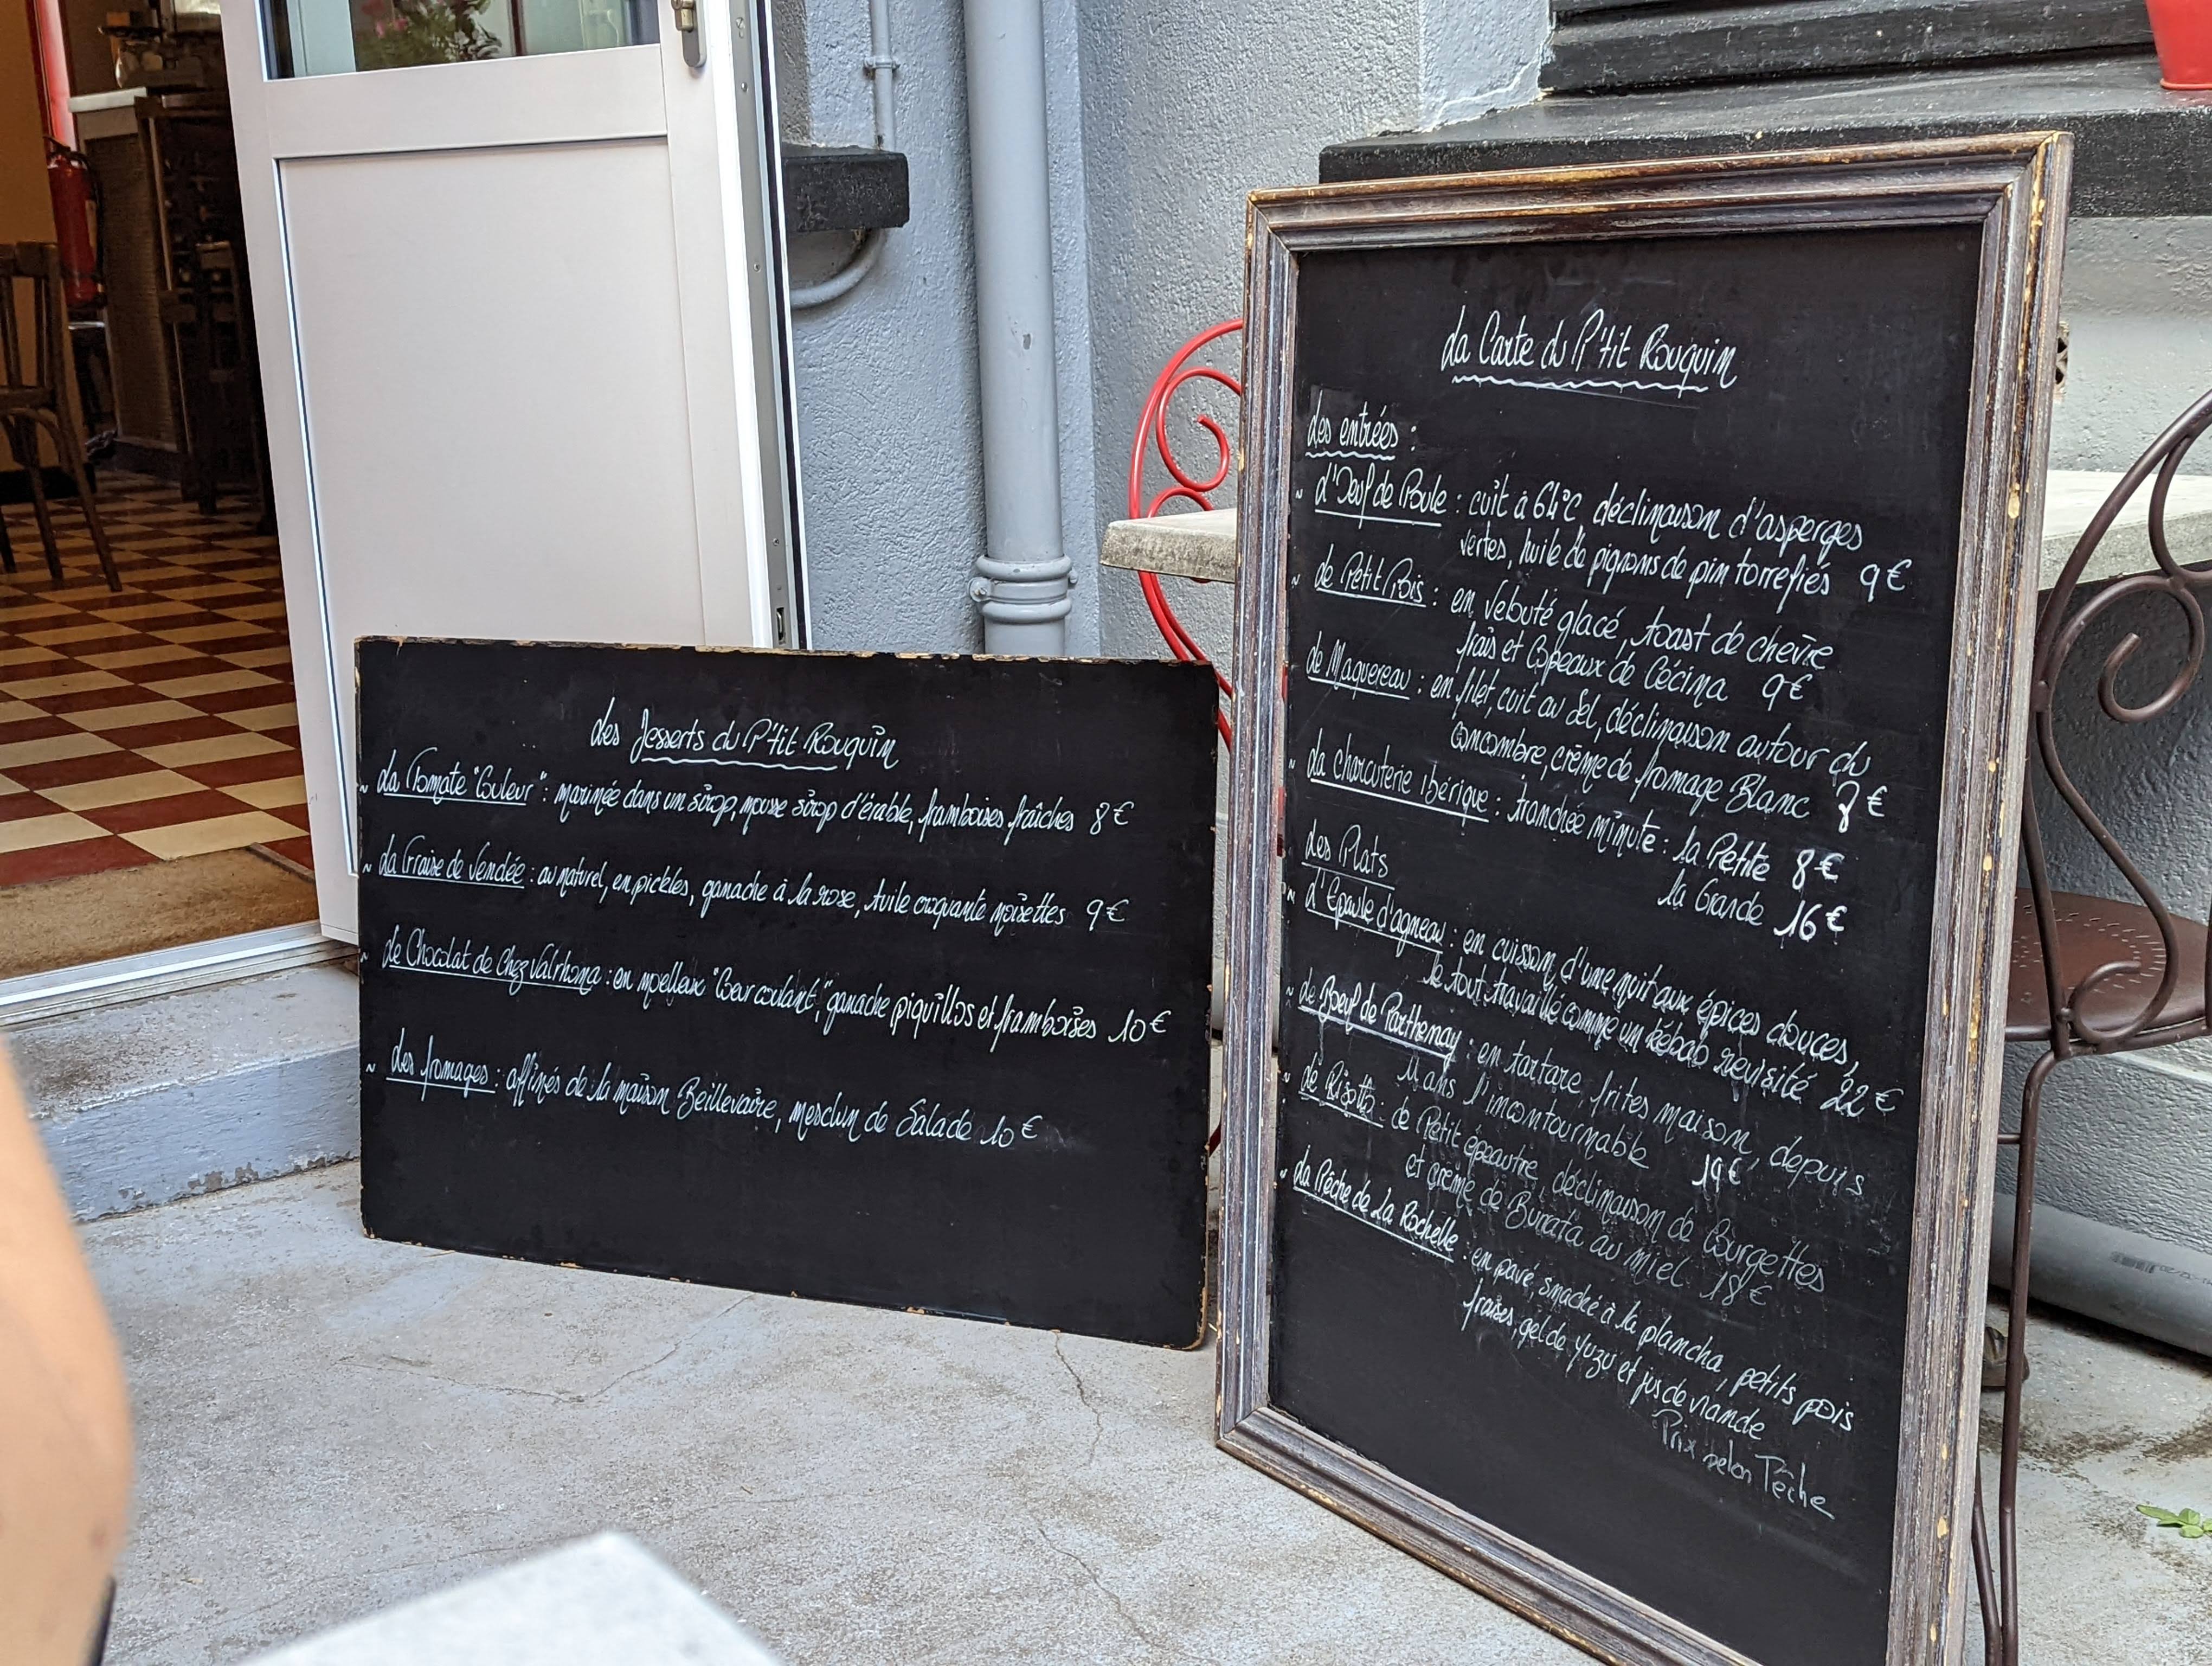 Les Desserts du P'tit Rouquin
~ La Tomate "Couleur" : marinée dans un sirop, mousse sirop d'érable, framboises fraîches 8€
~ La Fraise de Vendée : au naturel, en pickles, ganache à la rose, tuile croquante noisettes 9€
~ Le Chocolat de Chez Valrhona : en moelleux "Coeur coulant", ganache piquillos et framboises 10€
~ Les fromages : affinés de la maison Beillevaire, mesclun de Salade 10€
La Carte du P'tit Rouquin
Les entrées :
~ L'Oeuf de Poule : cuit à 64°C, déclinaison d'asperges
vertes, huile de pignons de pin torrefiés 9€
~ Le Petit Pois : en Velouté glacé, toast de chèvre
frais et Copeaux de Cécina 9€
Le Maquereau : en filet, cuit au Sel, déclinaison autour du
Concombre, crème de fromage Blanc 8€
~ La charcuterie ibérique : tranchée minute : la Petite 8€
la Grande 16€
Les Plats
~ L'Epaule d'agneau : en cuisson d'une nuit aux épices douces,
le tout travaillé comme un kébab revisité 22€
~ Le Boeuf de Parthenay : en tartare, frites maison, depuis
14 ans l'incontournable 19€
~ Le Risotto : de Petit épeautre, déclinaison de Courgettes
et crème de Burrata au miel 18€
~ La Pêche de La Rochelle : en pavé, snacké à la plancha, petits pois
fraises, gel de yuzu et jus de viande
Prix selon Pêche